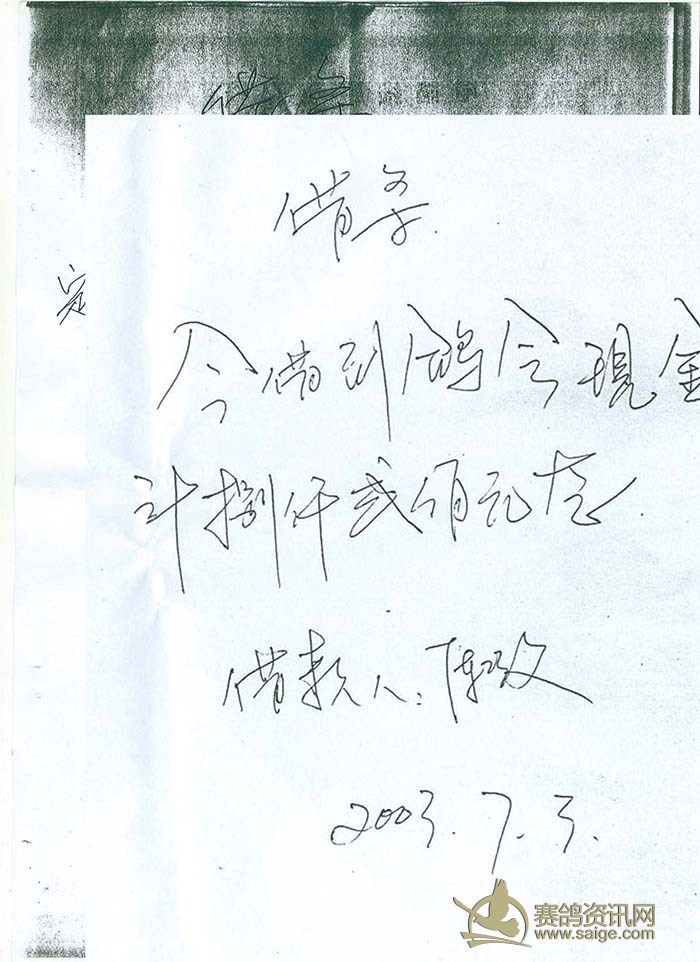 借条
定
借条
今借到鸽会现金
计捌仟贰佰元克
借款人:陈
2003.7.3.
赛鸽资讯网
www.saige.com